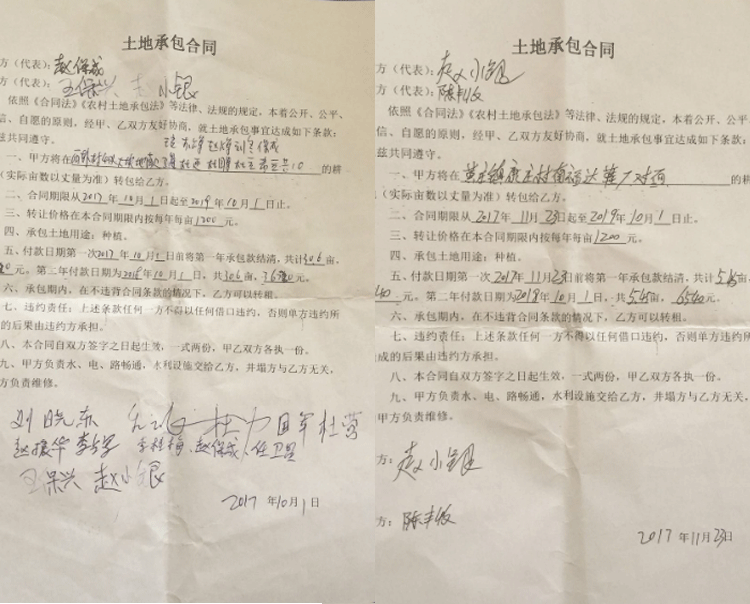 土地承包合同
方（代表）：赵保成
方（代表）：王保兴 赵小银
依照《合同法》《农村土地承包法》等法律、法规的规定，本着公开、公平、
信、自愿的原则，经甲、乙双方友好协商，就土地承包事宜达成如下条款：
兹共同遵守。
一、甲方将在 的耕
（实际亩数以丈量为准）转包给乙方。
二、合同期限从2017年10月1日起至2019年10月1日止。
三、转让价格在本合同期限内按每年每亩1200元。
四、承包土地用途：种植。
五、付款日期第一次2017年10月1日前将第一年承包款结清，共计30.6亩，
元。第二年付款日期为2018年10月1日，共30.6亩，元。
六、承包期内，在不违背合同条款的情况下，乙方可以转租。
七、违约责任：上述条款任何一方不得以任何借口违约，否则单方违约所
的后果由违约方承担。
八、本合同自双方签字之日起生效，一式两份，甲乙双方各执一份。
九、甲方负责水、电、路畅通，水利设施交给乙方，井塌方与乙方无关，
方负责维修。
刘晓东 国军 杜营
赵振华 李桂梅、赵保成、任卫星
王保兴 赵小银
2017年10月1日
土地承包合同
方（代表）：赵小银
方（代表）：陈丰收
依照《合同法》《农村土地承包法》等法律、法规的规定，本着公开、公平、
信、自愿的原则，经甲、乙双方友好协商，就土地承包事宜达成如下条款：
兹共同遵守。
一、甲方将在 的耕
（实际亩数以丈量为准）转包给乙方。
二、合同期限从2017年11月23日起至2019年10月1日止。
三、转让价格在本合同期限内按每年每亩1200元。
四、承包土地用途：种植。
五、付款日期第一次2017年11月23日前将第一年承包款结清，共计5.45亩，
40元。第二年付款日期为2018年10月1日，共5.45亩，6540元。
六、承包期内，在不违背合同条款的情况下，乙方可以转租。
七、违约责任：上述条款任何一方不得以任何借口违约，否则单方违约所
成的后果由违约方承担。
八、本合同自双方签字之日起生效，一式两份，甲乙双方各执一份。
九、甲方负责水、电、路畅通，水利设施交给乙方，井塌方与乙方无关，
甲方负责维修。
方：赵小银
方：陈丰收
2017年11月23日